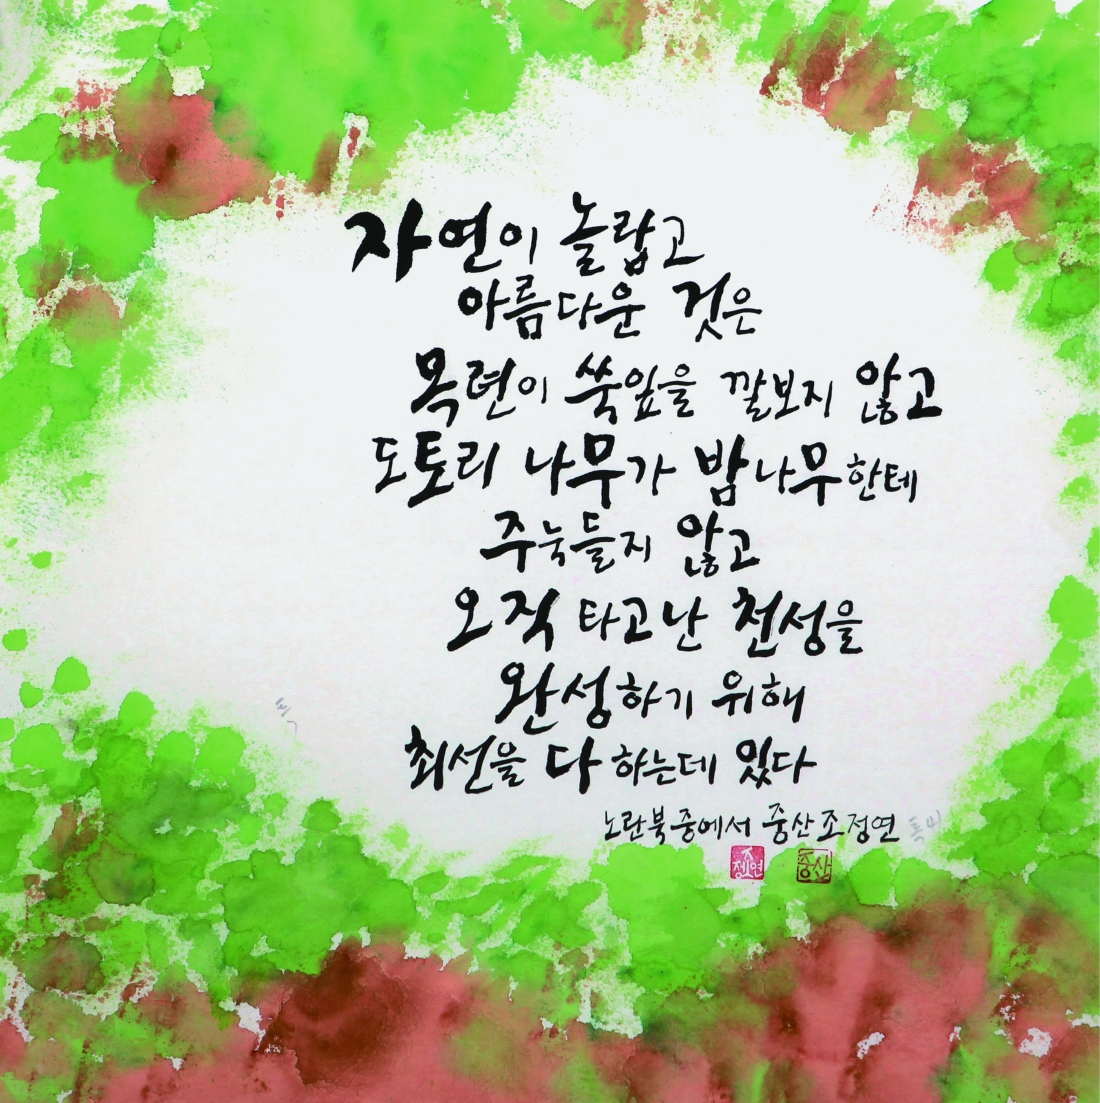 자연이 놀랍고
아름다운 것은
목련이 쑥잎을 깔보지 않고
도토리 나무가 밤나무한테
주눅들지 않고
오직 타고난 천성을
완성하기 위해
최선을 다 하는데 있다
노란북중에서 중산조정연
조정연
중산